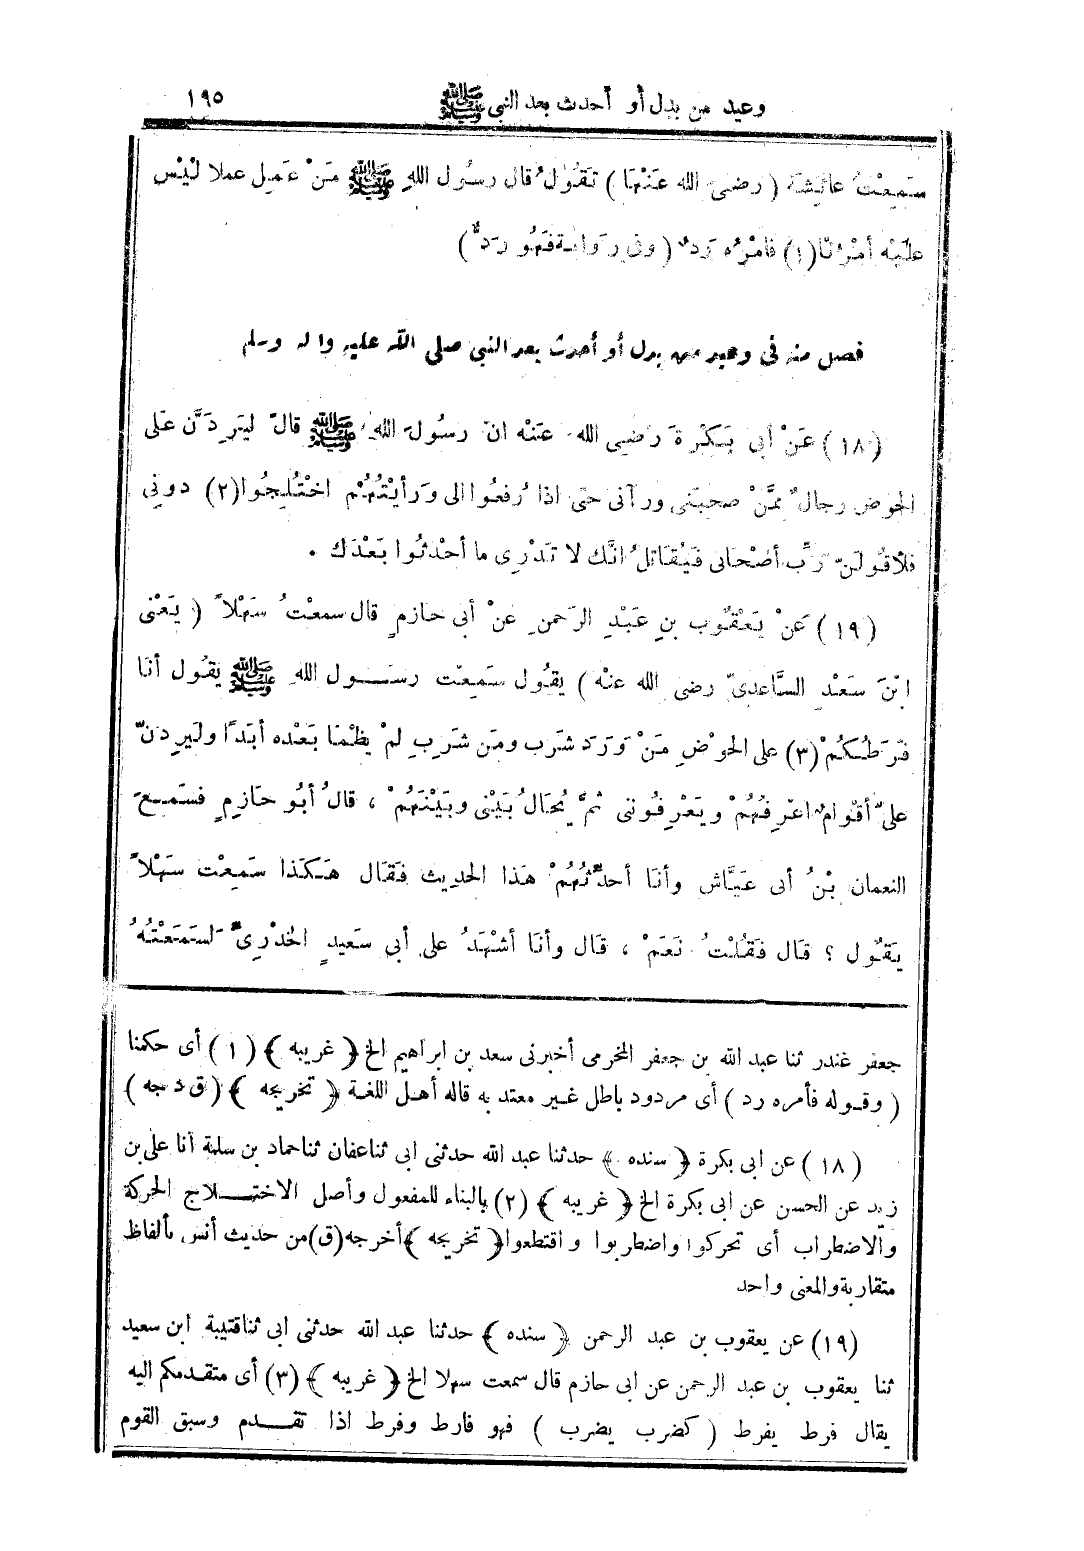 وعيد من بدل أو أحدث بعد النبي ﷺ ١٩٥
سَمِعْتُ عائِشَةَ (رضىَ الله عَنْهَا) تَقُولُ قال رسُول اللهِ ﷺ مَنْ عَمِل عملا لَيْس
عليْه أمْرُنَا (١) فأمْرُه رَدٌّ (وفى رِوَايةٍ فَهُو رَدٌّ)
فصل منه فى وعيد من بدل أو أحدث بعد النبي صلى الله عليه وآله وسلم
(١٨) عَنْ أبى بَكْرَةَ رَضىِ الله عَنْه أنّ رسُولَ اللهِ ﷺ قالَ لَيَرِدَنَّ عَلَى
الحوْضَ رجالٌ ممَّنْ صحبَنى ورآنى حتّى اذا رُفعُوا الىّ ورَأيْتُهُمْ اخْتُلِجُوا (٢) دونِي
فلأقُولَنّ رَبِّ أصْحَابى فَيُقَالُ انَّك لا تَدْرِى ما أحْدثُوا بَعْدَكَ .
(١٩) عَنْ يَعْقُوب بنِ عَبْدِ الرَحمنِ عنْ أبى حازمٍ قال سمعْتُ سَهْلاً (يَعْنى
ابْنَ سَعْدٍ السَّاعدِىّ رضى الله عنْه) يقُول سَمِعْت رسُول اللهِ ﷺ يقُول أنَا
فَرَطُكُمْ (٣) على الحوْضِ مَنْ وَرَدَ شَرَب ومَن شَرِبِ لمْ يظْمَا بَعْده أبَدًا ولَيَرِدَنّ
علىّ أقْوامٌ اعْرِفُهُمْ ويَعْرِفُونى ثمَّ يُحَالُ بَيْنى وبَيْنَهُمْ ، قالَ أبُو حَازِمٍ فسَمِعَ
النعمان بْنُ أبى عيَّاش وأنَا أحدِّثُهُمْ هَذا الحديث فَقَال هَكَذا سَمِعْت سَهْلاً
يَقُول ؟ قال فَقُلْتُ نَعَمْ ، قَال وأنَا أشْهَدُ على أبى سَعيدٍ الخدْرِىِّ لَسَمَعْتُهُ
جعفر غندر ثنا عبد الله بن جعفر المخرمى أخبرنى سعد بن ابراهيم الخ ﴿غريبه﴾ (١) أى حكمنا
(وقوله فأمره رد) أى مردود باطل غير معتد به قاله أهل اللغة ﴿تخريجه﴾ (ق د جه)
(١٨) عن ابى بكرة ﴿سنده﴾ حدثنا عبد الله حدثنى ابى ثنا عفان ثنا حماد بن سلمة أنا على بن
زيد عن الحسن عن ابى بكرة الخ ﴿غريبه﴾ (٢) بالبناء للمفعول وأصل الاختلاج الحركة
والاضطراب أى تحركوا واضطربوا واقتطعوا ﴿تخريجه﴾ أخرجه (ق) من حديث أنس بألفاظ
متقاربة والمعنى واحد
(١٩) عن يعقوب بن عبد الرحمن ﴿سنده﴾ حدثنا عبد الله حدثنى ابى ثنا قتيبة ابن سعيد
ثنا يعقوب بن عبد الرحمن عن ابى حازم قال سمعت سهلا الخ ﴿غريبه﴾ (٣) أى متقدمكم اليه
يقال فرط يفرط (كضرب يضرب) فهو فارط وفرط اذا تقدم وسبق القوم